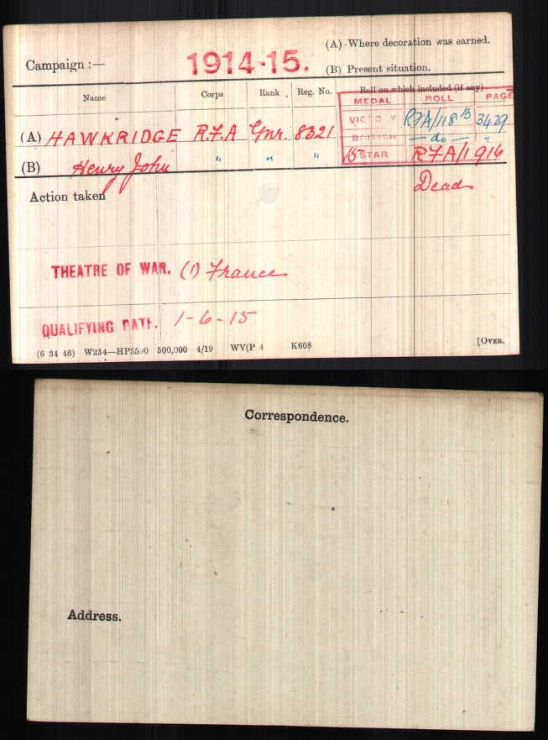 Campaign :— 1914-15. (A) Where decoration was earned.
(B) Present situation.
Name Corps Rank Reg. No. Roll on which included (if any)
MEDAL ROLL PAGE
(A) HAWKRIDGE R.F.A Gnr. 8321
VICTORY RFA/118 B 3429
BRITISH — do — "
(B) Henry John " " "
15 STAR RFA/1 916
Action taken Dead
THEATRE OF WAR. (1) France
QUALIFYING DATE. 1-6-15
(6 34 46) W234—HP5590 500,000 4/19 WV(P 4 K608 [OVER.
Correspondence.
Address.